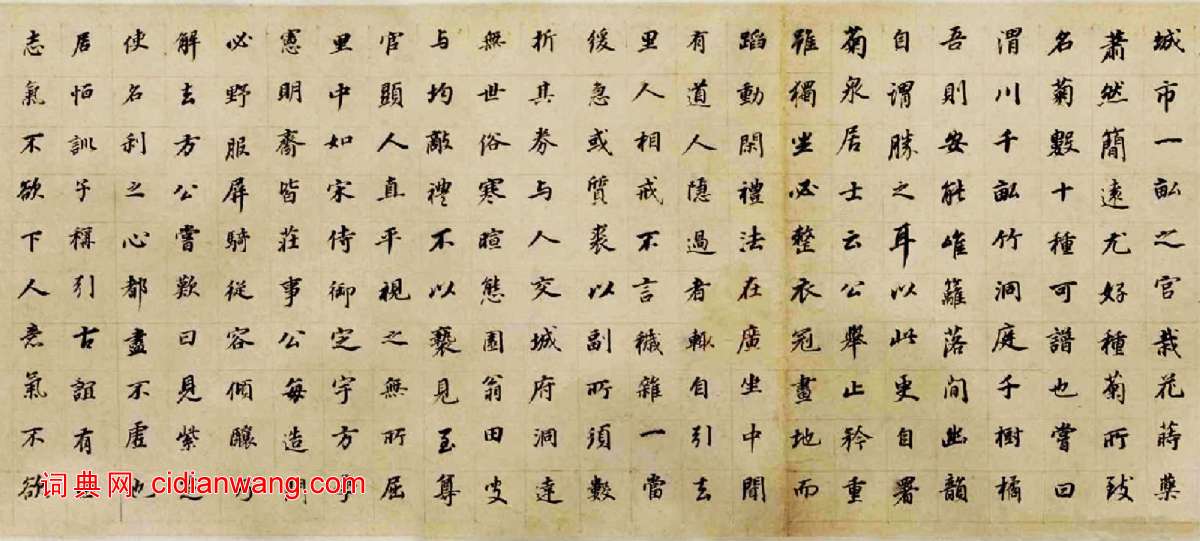 城市一畝之宮栽花蒔藥
蕭然簡遠尤好種菊所致
名菊數十種可譜也嘗曰
渭川千畝竹洞庭千樹橘
吾則安能唯籬落間幽韻
自謂勝之耳以此更自署
菊泉居士云公舉止矜重
雖獨坐必整衣冠畫地而
蹈動閑禮法在廣坐中間
有道人隱過者輒自引去
里人相戒不言穢雜一當
緩急或質裘以副所須數
折其券與人交城府洞達
無世俗寒暄態園翁田叟
與均敵禮不以褻見至尊
官顯人直平視之無所屈
里中如宋侍御定宇方學
憲明齋皆莊事公每造門
必野服屏騎從容傾釀乃
解去方公嘗歎曰見紫
使名利之心都盡不虛也
居恒訓子稱引古誼有
志氣不欲下人意氣不欲
词典网 cidianwang.com